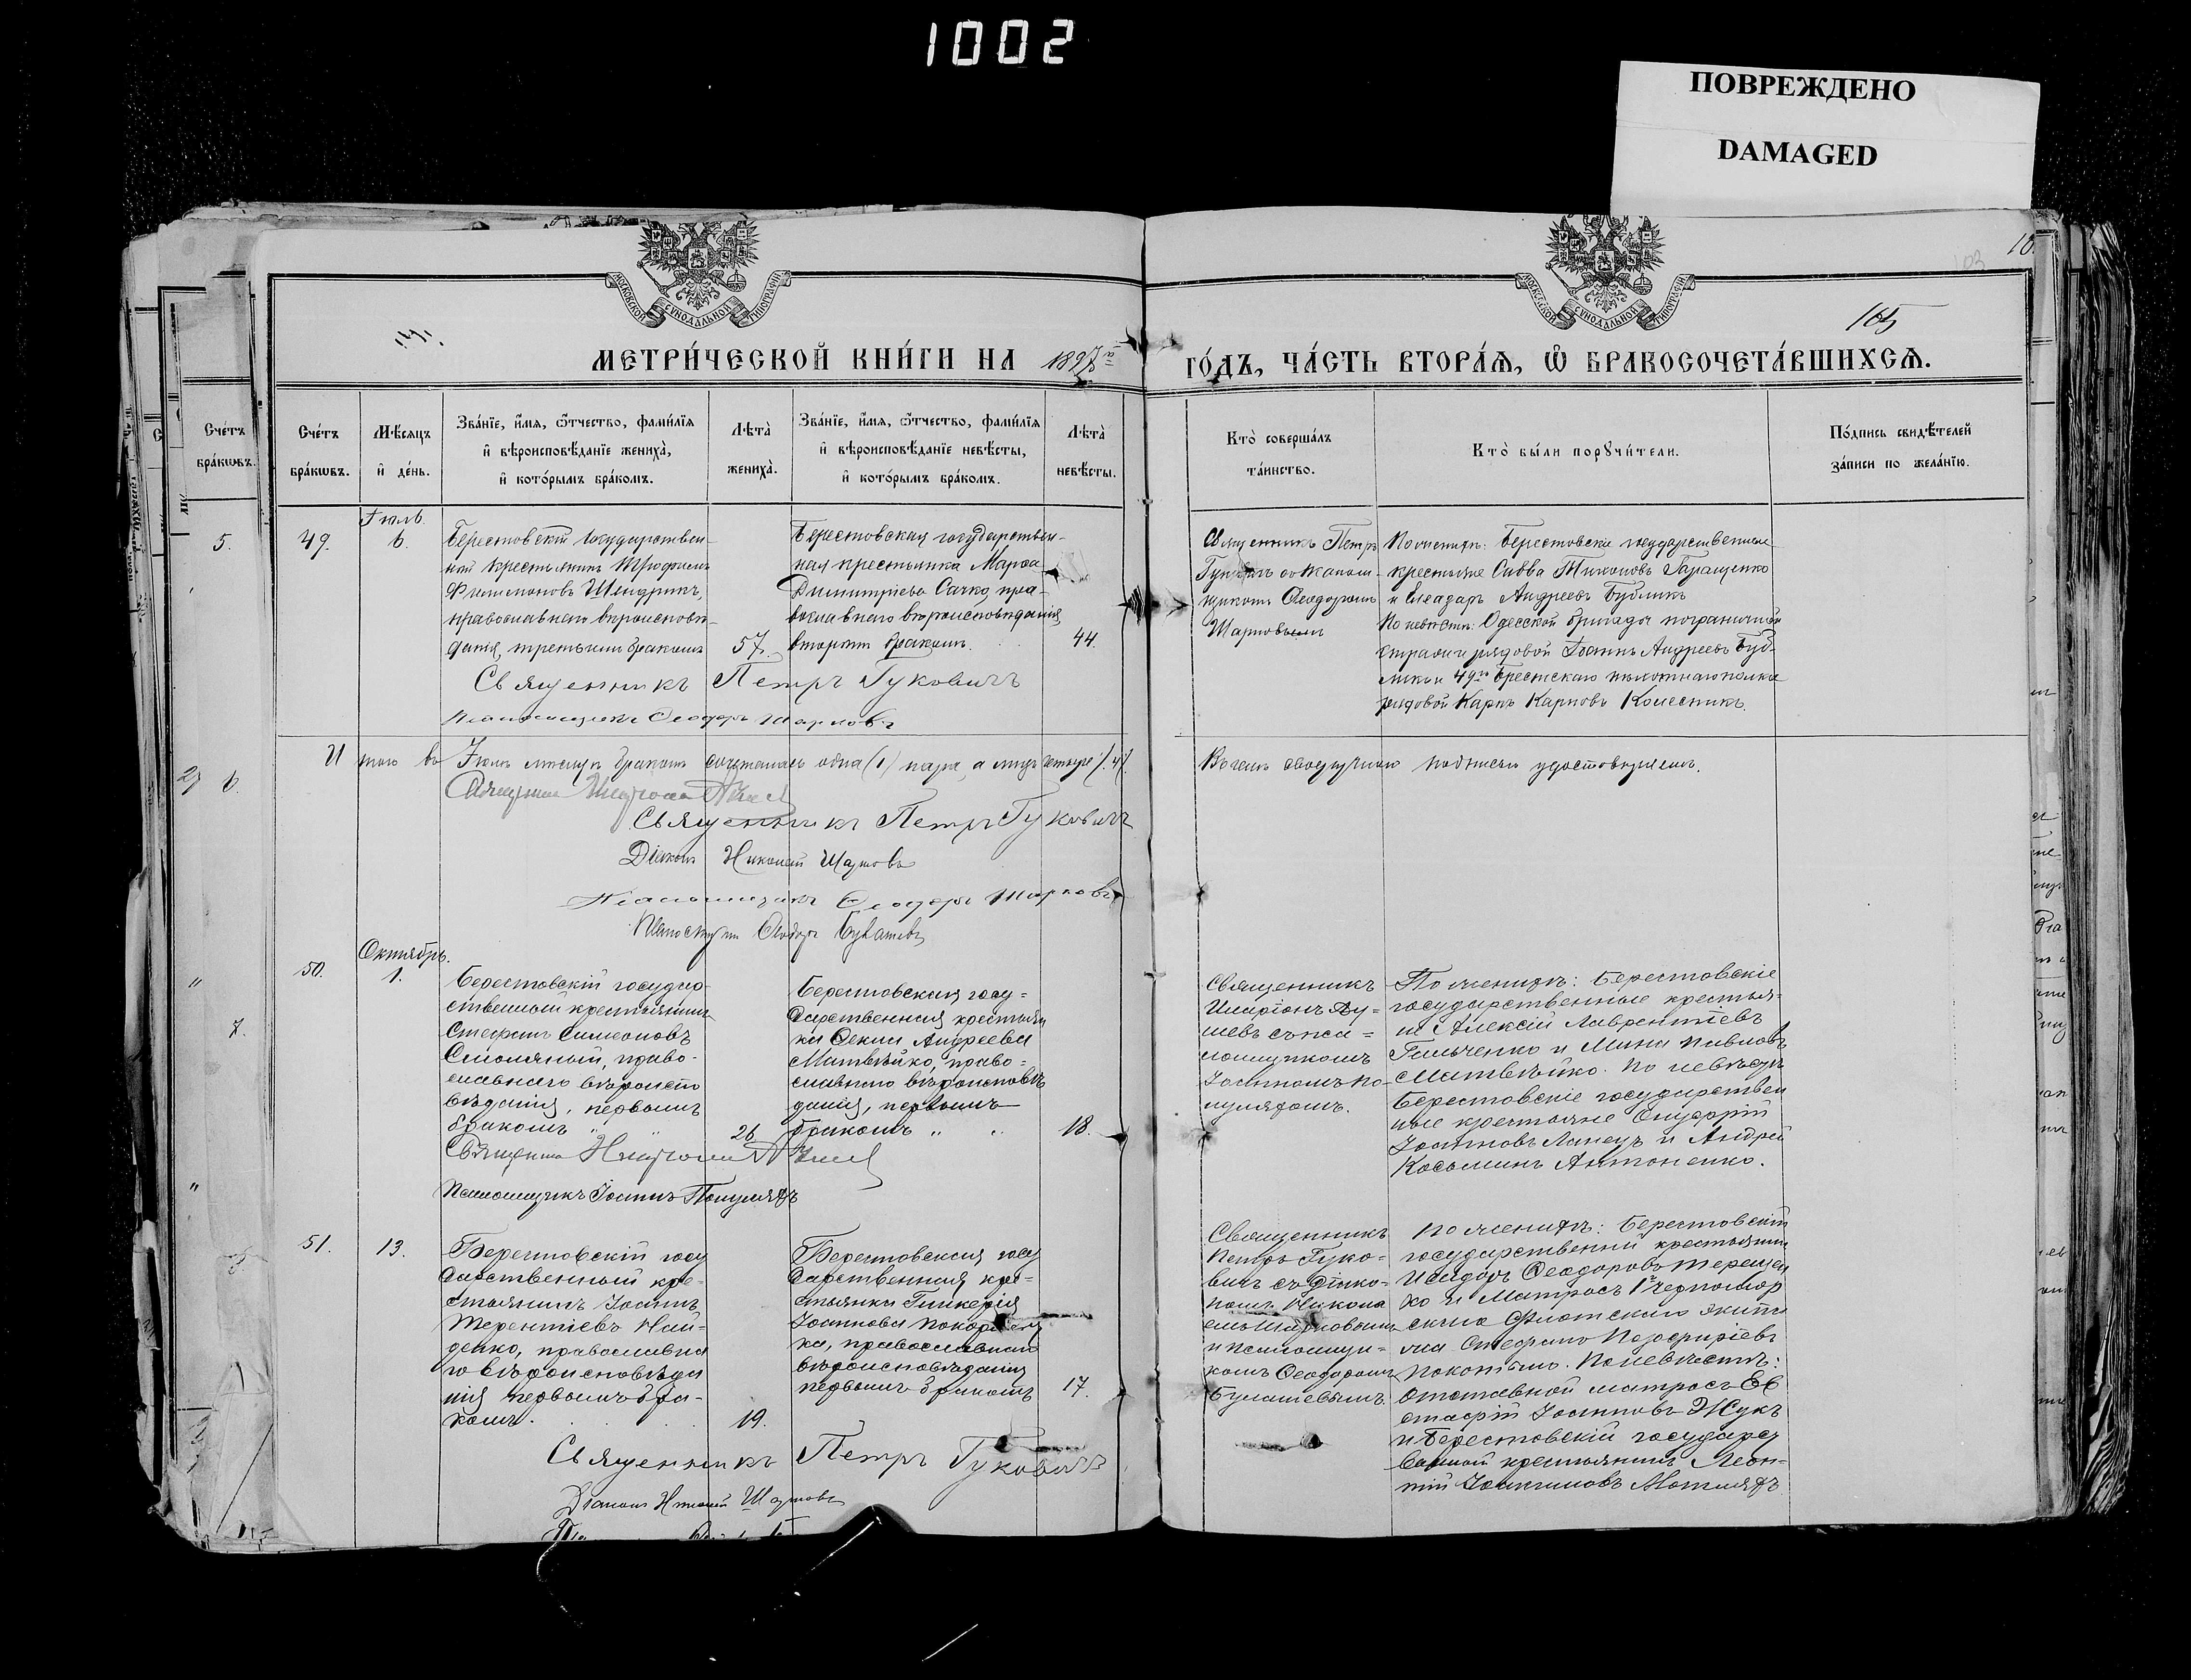 1002
ПОВРЕЖДЕНО
DAMAGED
МОСКОВСКОЙ СУНОДАЛЬНОЙ ТИПОГРАФІИ
МОСКОВСКОЙ СУНОДАЛЬНОЙ ТИПОГРАФІИ
103
105
МЕТРИ́ЧЕСКОЙ КНИ́ГИ НА 1897й ГО́ДЪ, ЧА́СТЬ ВТОРА́Ѧ, Ѽ БРАКОСОЧЕТА́ВШИХСѦ.
Сче́тъ
бра́кѡвъ.
Сче́тъ
бра́кѡвъ.
Мѣ́сяцъ
и҆ де́нь.
Зва́нїе, и҆́мѧ, ѻ҆́тчество, фами́лїѧ
и҆ вѣроисповѣ́данїе жениха̀,
и҆ кото́рымъ бра́комъ.
Лѣта̀
жениха̀.
Зва́нїе, и҆́мѧ, ѻ҆́тчество, фами́лїѧ
и҆ вѣроисповѣ́данїе невѣ́сты,
и҆ кото́рымъ бра́комъ.
Лѣта̀
невѣ́сты.
Кто̀ соверша́лъ
та́инство.
Кто̀ бы́ли порꙋчи́тели.
По́дпись свидѣ́телей
за́писи по жела́нїю.
5.
6.
7.
49.
Іюль.
6.
Берестовскій государствен-
ный крестьянинъ Трофимъ
Филимоновъ Шендрикъ,
православнаго вѣроисповѣ-
данія, третьимъ бракомъ
57.
Берестовская государствен-
ная крестьянка Марѳа
Димитріева Сачко, пра-
вославнаго вѣроисповѣданія
вторымъ бракомъ.
44.
Священникъ Петръ
Гуковичъ съ псалом-
щикомъ Ѳеодоромъ
Шарповымъ
По женихѣ: Берестовскіе государственные
крестьяне Савва Тихоновъ Таращенко
и Елеазаръ Андреевъ Бубликъ
По невѣстѣ: Одесской бригады пограничной
стражи рядовой Іоаннъ Андреевъ Буб-
ликъ и 49го Брестскаго пѣхотнаго полка
рядовой Карпъ Карповъ Колесникъ.
Священникъ Петръ Гуковичъ
Псаломщикъ Ѳеодоръ Шарповъ
Итого въ Іюлѣ мѣсяцѣ бракомъ сочеталась одна (1) пара, а лицъ (4).
Въ чемъ своеручною подписью удостовѣряемъ.
Священникъ
Священникъ Петръ Гуковичъ
Діаконъ Николай Шарповъ
Псаломщикъ Ѳеодоръ Шарповъ
Псаломщикъ Ѳеодоръ Булашевъ
50.
Октябрь.
1.
Берестовскій государ-
ственный крестьянинъ
Стефанъ Симеоновъ
православнаго вѣроиспо
вѣданія, первымъ
бракомъ " "
26
Берестовская госу-
дарственная крестьян
ка Ѳекла Андреева
Матвѣйко, право-
славнаго вѣроисповѣ
данія, первымъ
бракомъ " "
18.
Священникъ
Иларіонъ
съ пса-
ломщикомъ
Іоанномъ По-
пулядомъ.
По женихѣ: Берестовскіе
государственные крестья-
не Алексій Лаврентіевъ
Гальченко и Мина Павловъ
Матвѣйко. По невѣстѣ
Берестовскіе государствен
ные крестьяне Онуфрій
Іоанновъ Лапецъ и Андрей
Косьминъ Антоненко.
Священникъ
Псаломщикъ Іоаннъ
51.
13.
Берестовскій госу
дарственный кре-
стьянинъ Іоаннъ
Терентіевъ Най-
денко, православна
го вѣроисповѣда
нія первымъ бра-
комъ.
19.
Берестовская госу
дарственная кре-
стьянка Гликерія
Іоаннова
ка, православнаго
вѣроисповѣданія
первымъ бракомъ
17.
Священникъ
Петръ Гуко-
вичъ съ діако-
номъ Никола
емъ Шарповымъ
и псаломщи-
комъ Ѳеодоромъ
Булашевымъ.
По женихѣ: Берестовскій
государственный крестьянинъ
Исидоръ Ѳеодоровъ Терещен
ко и Матросъ 1го Черномор
скаго Флотскаго экипа
жа Стефанъ Порфиріевъ
Покотыло. По невѣстѣ:
Отставной матросъ Ев
стафій Іоанновъ Жукъ
и Берестовскій государст
венный крестьянинъ Леон-
тій Іоакимовъ
Священникъ Петръ Гуковичъ
Діаконъ Николай Шарповъ